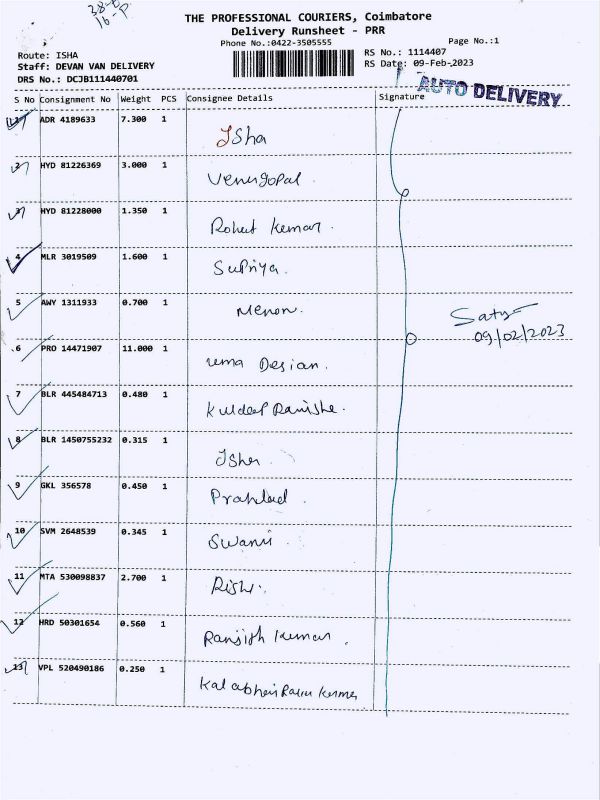 38-D
16-P
THE PROFESSIONAL COURIERS, Coimbatore
Delivery Runsheet - PRR
Phone No.:0422-3505555
Page No.:1
Route: ISHA
RS No.: 1114407
Staff: DEVAN VAN DELIVERY
RS Date: 09-Feb-2023
DRS No.: DCJB111440701
AUTO DELIVERY
S No Consignment No Weight PCS Consignee Details Signature
ADR 4189633 7.300 1 Isha
2 HYD 81226369 3.000 1 Venugopal
3 HYD 81228000 1.350 1 Rohit Kumar.
4 MLR 3019509 1.600 1 Supriya.
5 AWY 1311933 0.700 1 Menon.
Saty
09/02/2023
6 PRO 14471907 11.000 1 uma Desian.
7 BLR 445484713 0.480 1 Kuldeep
8 BLR 1450755232 0.315 1 Isha
9 GKL 356578 0.450 1 Prahlad
10 SVM 2648539 0.345 1 Swami
11 MTA 530098837 2.700 1 Rishi.
12 HRD 50301654 0.560 1 Ranjith Kumar.
13 VPL 520490186 0.250 1